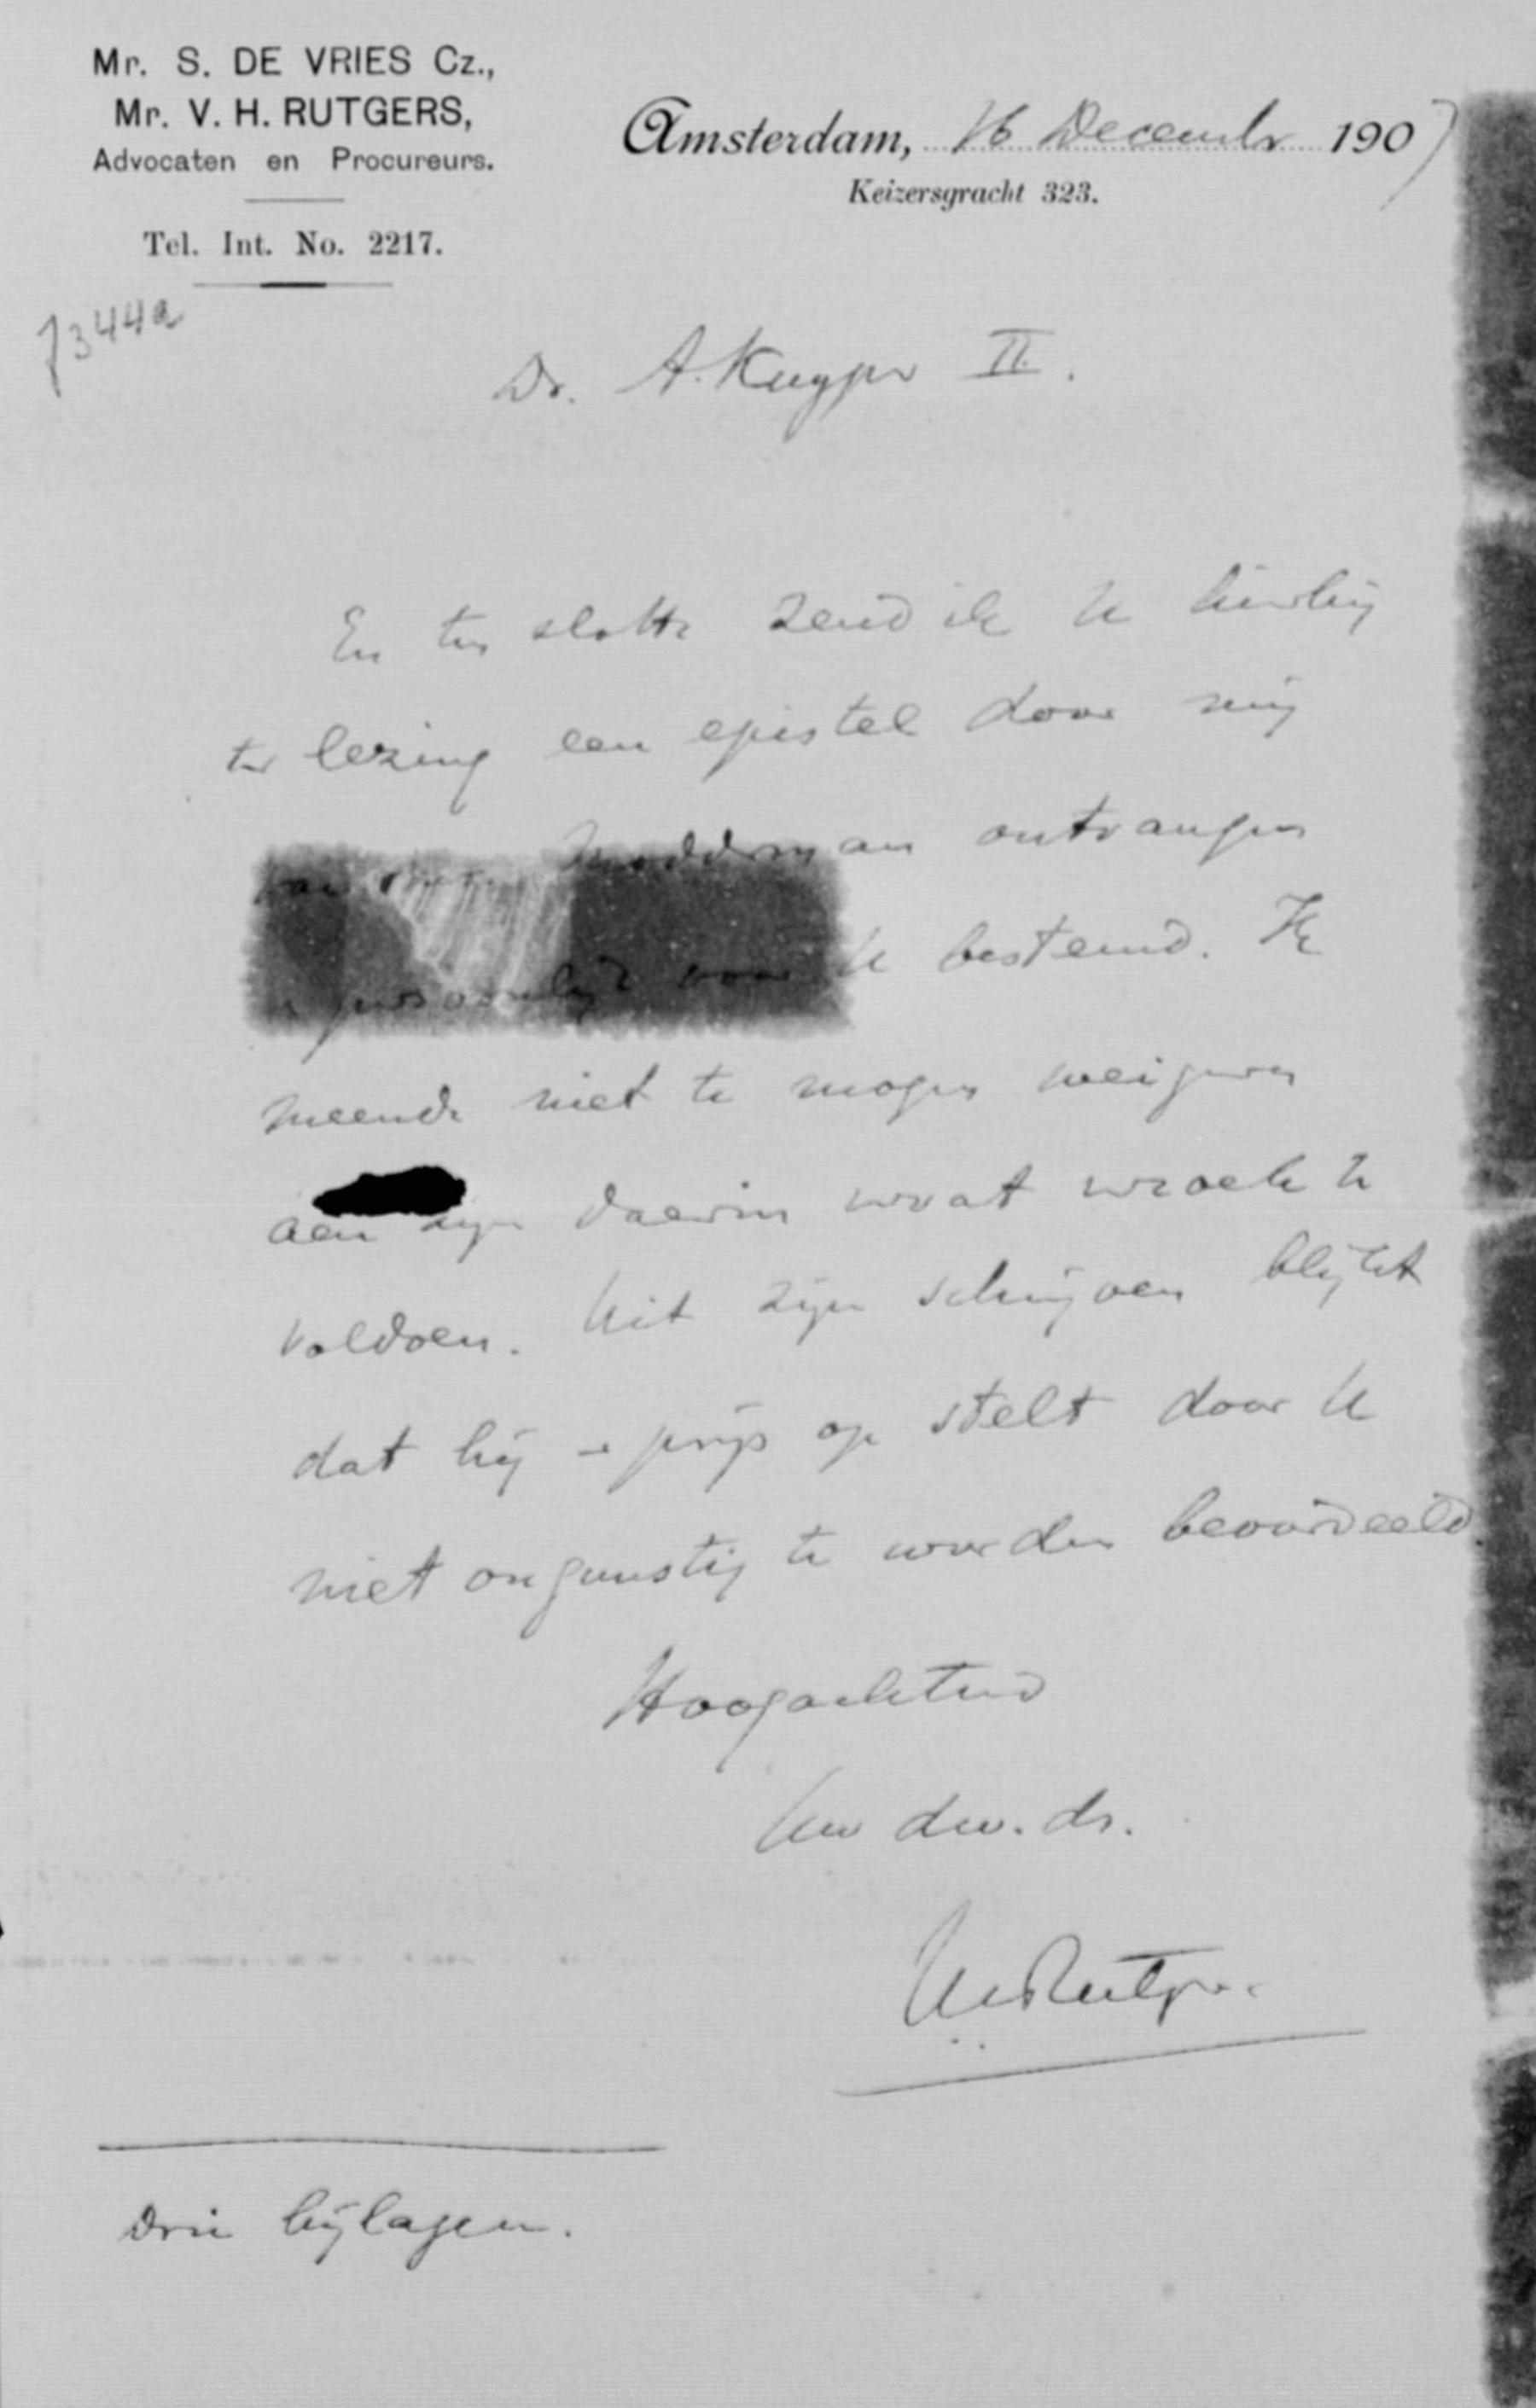 Mr. S. DE VRIES Cz.,
Mr. V. H. RUTGERS,
Advocaten en Procureurs.
Tel. Int. No. 2217.
Amsterdam, 16 December 1907
Keizersgracht 323.
7344a
Dr. A. Kuyper II.
En ten slotte zend ik U hierbij
ter lezing een epistel door mij
van Modderman ontvangen
persoonlijk voor U bestemd. Ik
meende niet te mogen weigeren
aan zijn daarin vervat verzoek te
voldoen. Uit zijn schrijven blijkt
dat hij er prijs op stelt door U
niet ongunstig te worden beoordeeld.
Hoogachtend
Uw dw. dr.
VHRutgers.
Drie bijlagen.